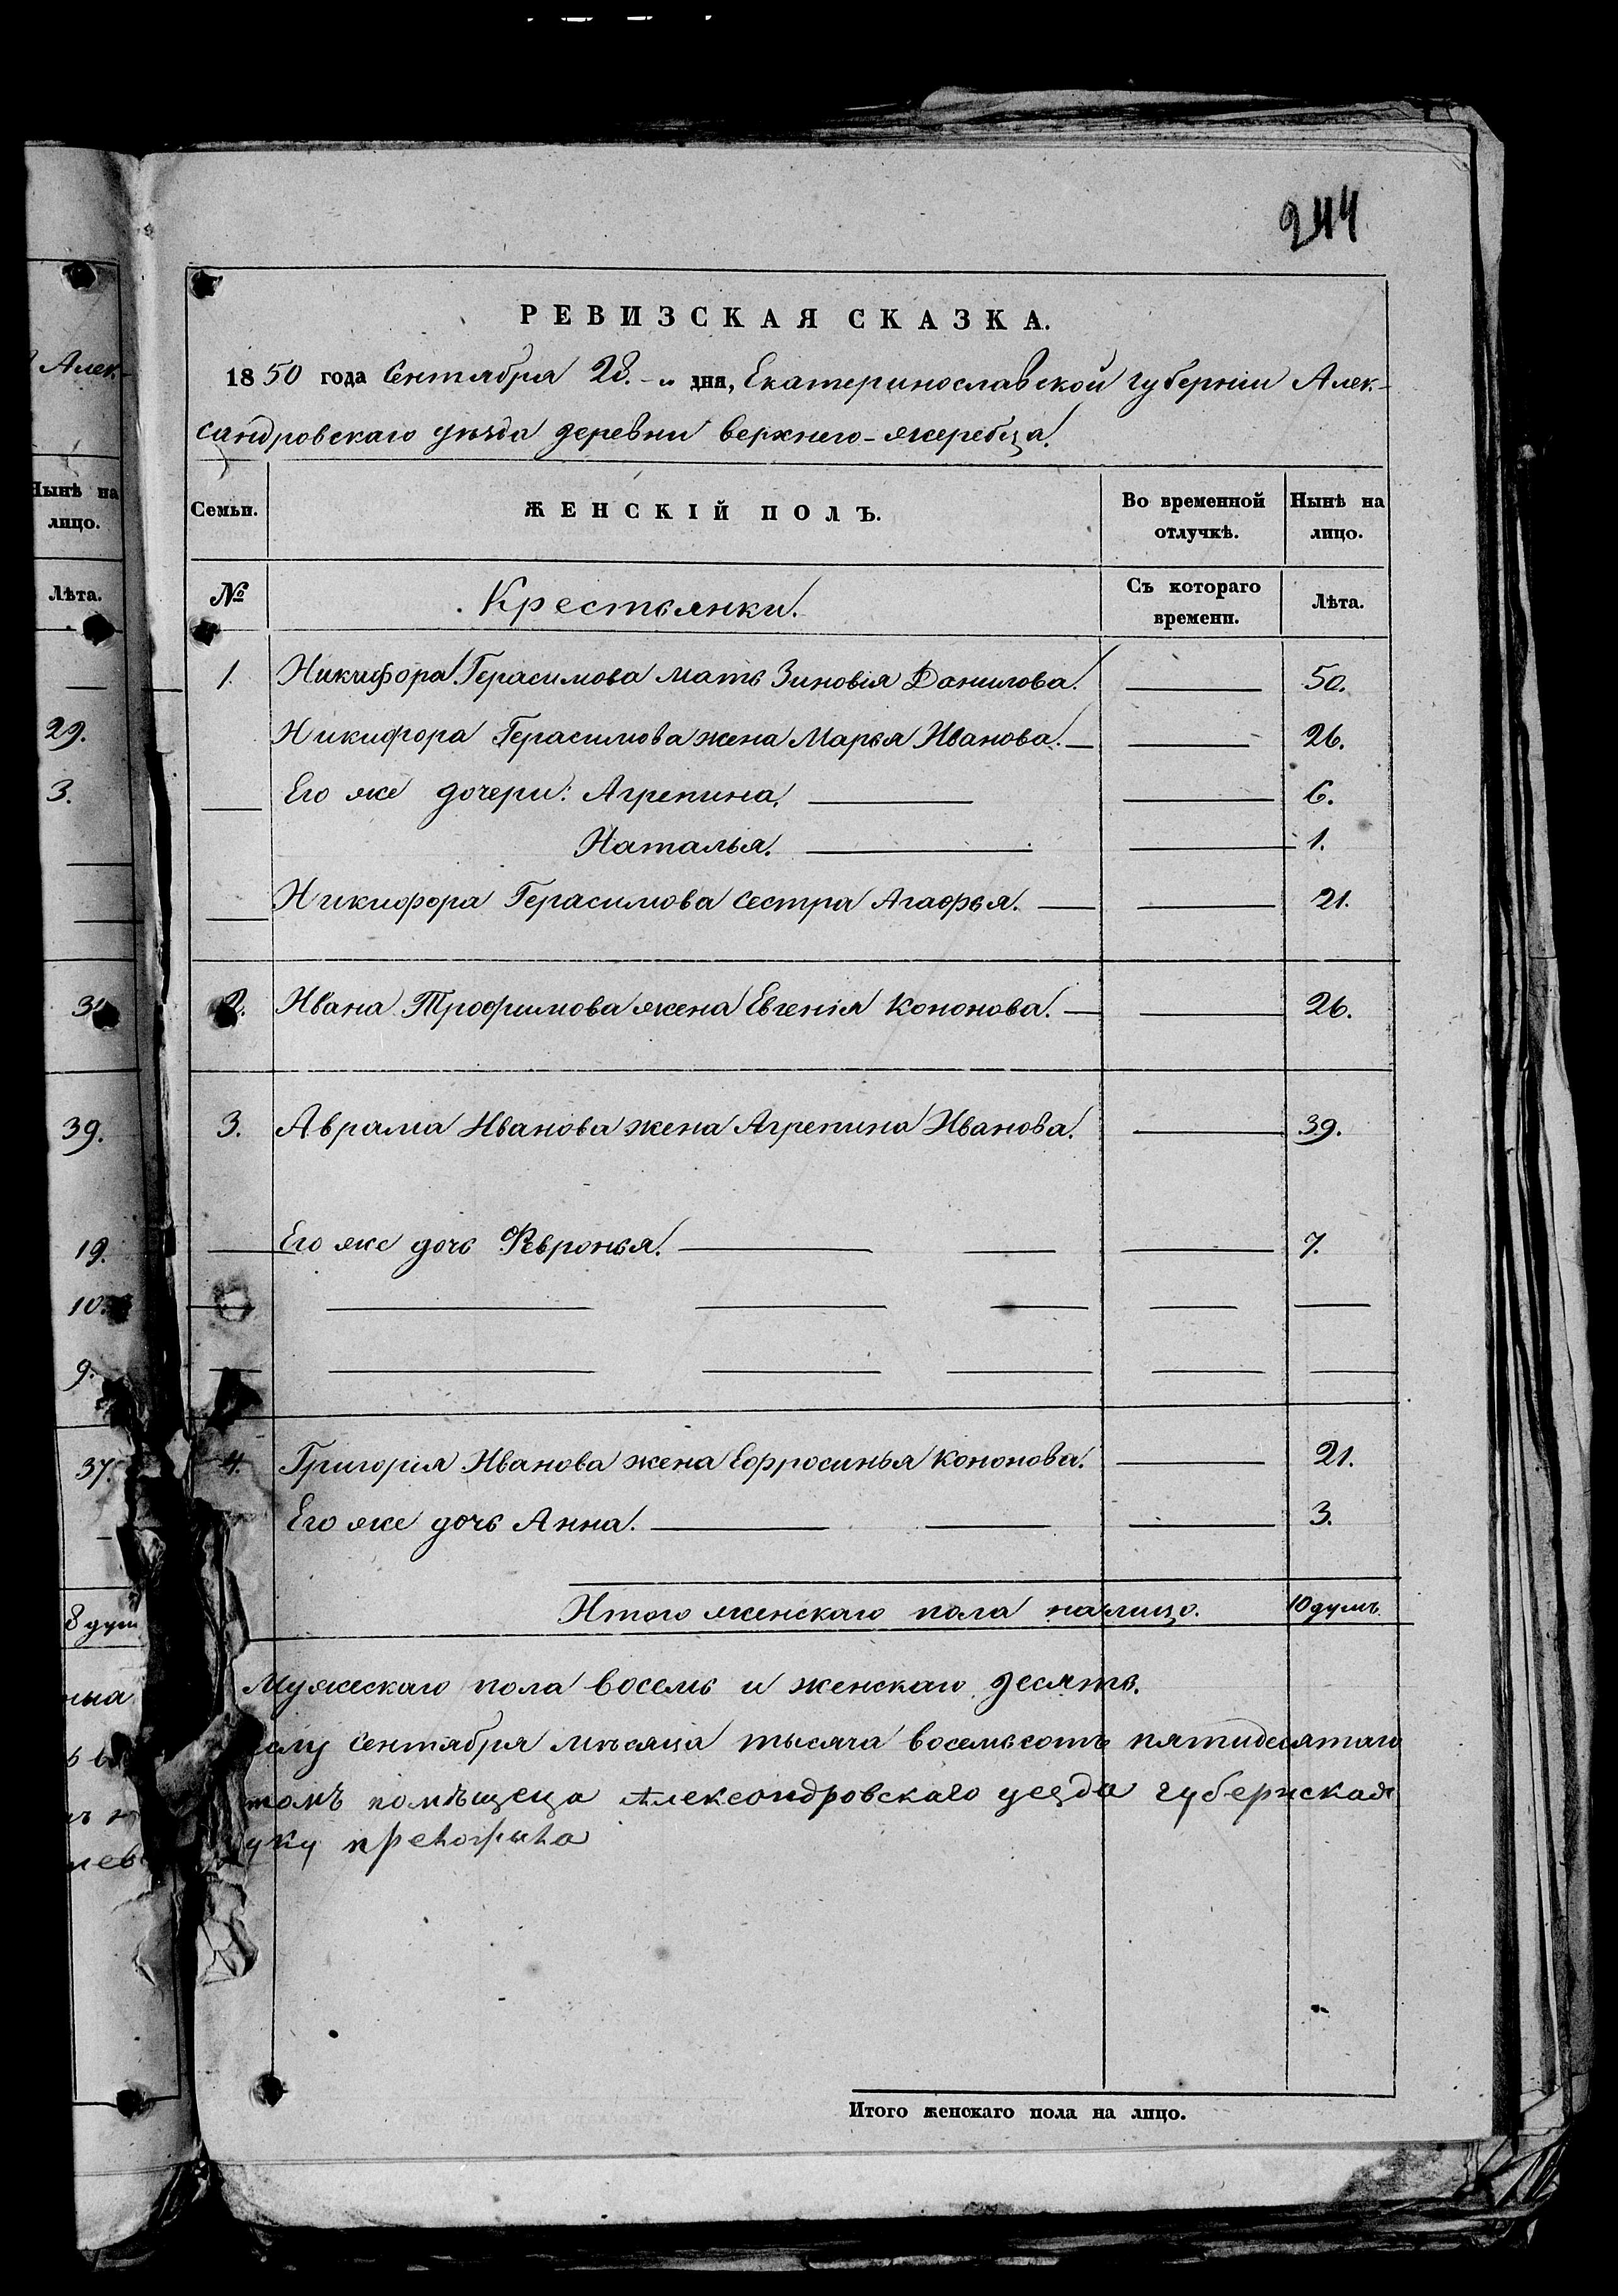 244
РЕВИЗСКАЯ СКАЗКА.
1850 года Сентября 28.-го дня, Екатеринославской губерніи Алек-
сандровскаго уѣзда деревни верхнего-жеребца.
Семьи. ЖЕНСКІЙ ПОЛЪ. Во временной отлучкѣ. Нынѣ на лицо.
№ Крестьянки. Съ котораго времени. Лѣта.
1. Никифора Герасимова мать Зиновія Данилова. 50.
Никифора Герасимова жена Марья Иванова. 26.
Его же дочери: Агрепина. 6.
Наталья. 1.
Никифора Герасимова сестра Агафья. 21.
2. Ивана Трофимова жена Евгенія Кононова. 26.
3. Аврама Иванова жена Агрепина Иванова. 39.
Его же дочь Февронья. 7.
4. Григорія Иванова жена Ефросинья Кононова. 21.
Его же дочь Анна. 3.
Итого женскаго пола налицо. 10 душъ
Мужескаго пола восемь и женскаго десять.
Сентября мѣсяца тысяча восемьсотъ пятидесятаго
помѣщеца Александровскаго уезда губернская
Итого женскаго пола на лицо.
Алек-
Нынѣ на
лицо.
Лѣта.
29.
3.
39.
19.
10.
9.
37.
8 душ